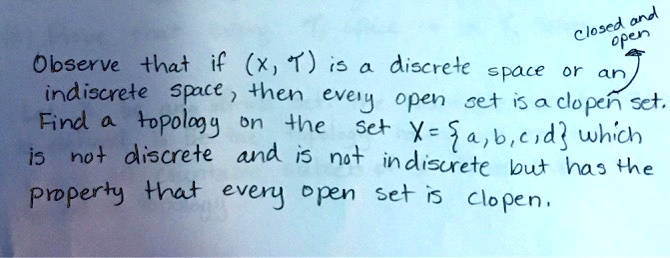 closed and
open
Observe that if (X, T) is a discrete space or an
indiscrete space, then every open set is a clopen set.
Find a topology on the set X = {a, b, c, d} which
is not discrete and is not indiscrete but has the
property that every open set is clopen.